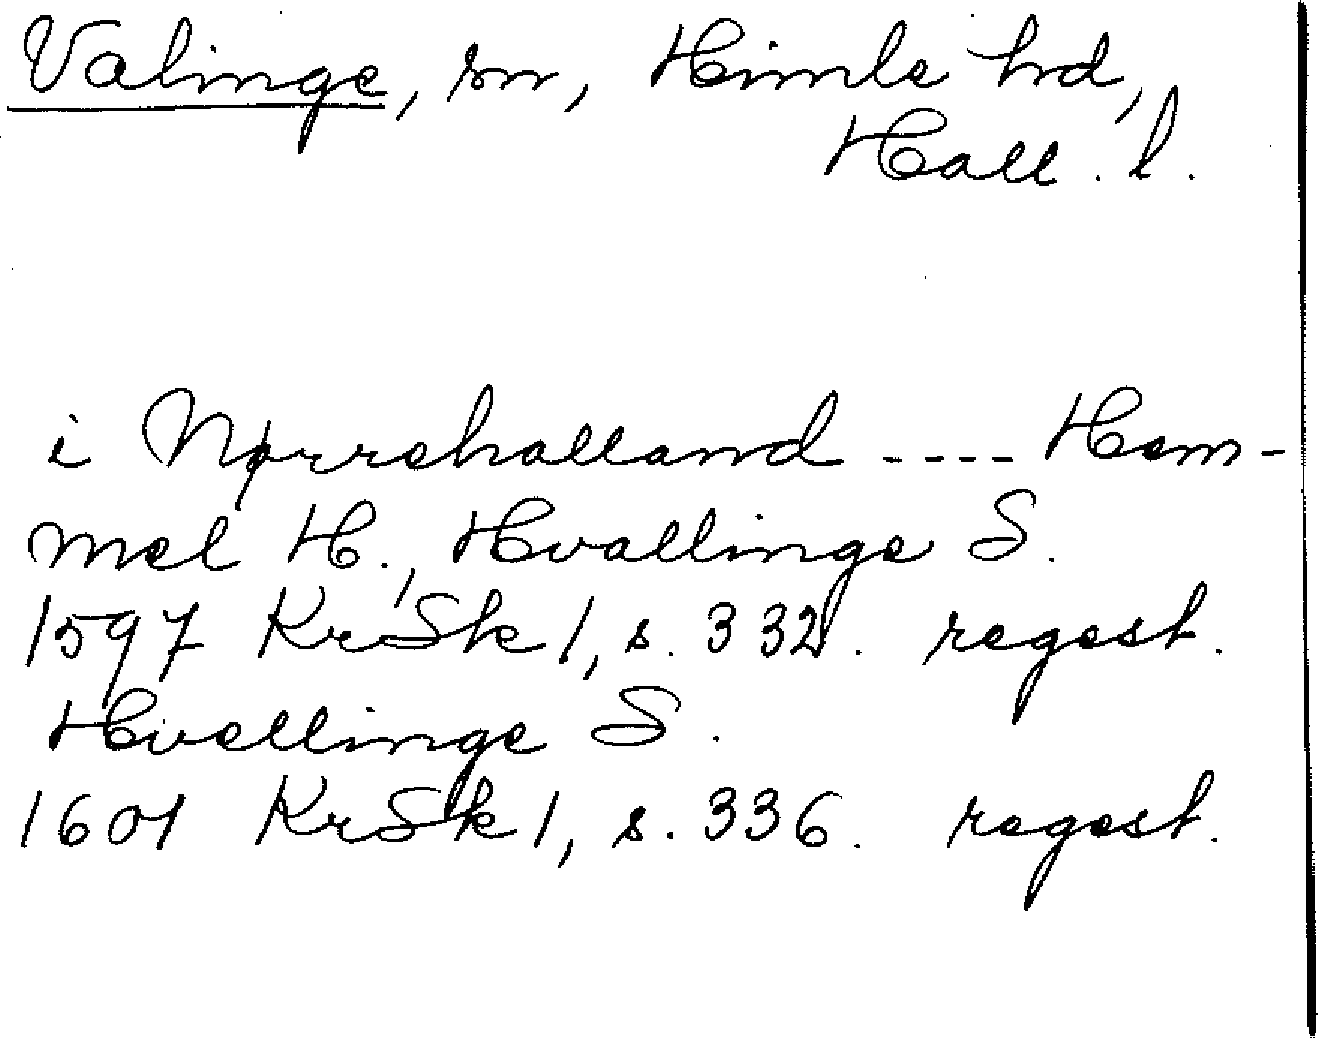 Valinge, sn, Himle hd,
Hall. l.
i Nørrehalland ---- Hem-
mel H., Hvallinge S.
1597 KrSk 1, s. 332. regest.
Hvellinge S.
1601 KrSk 1, s. 336. regest.